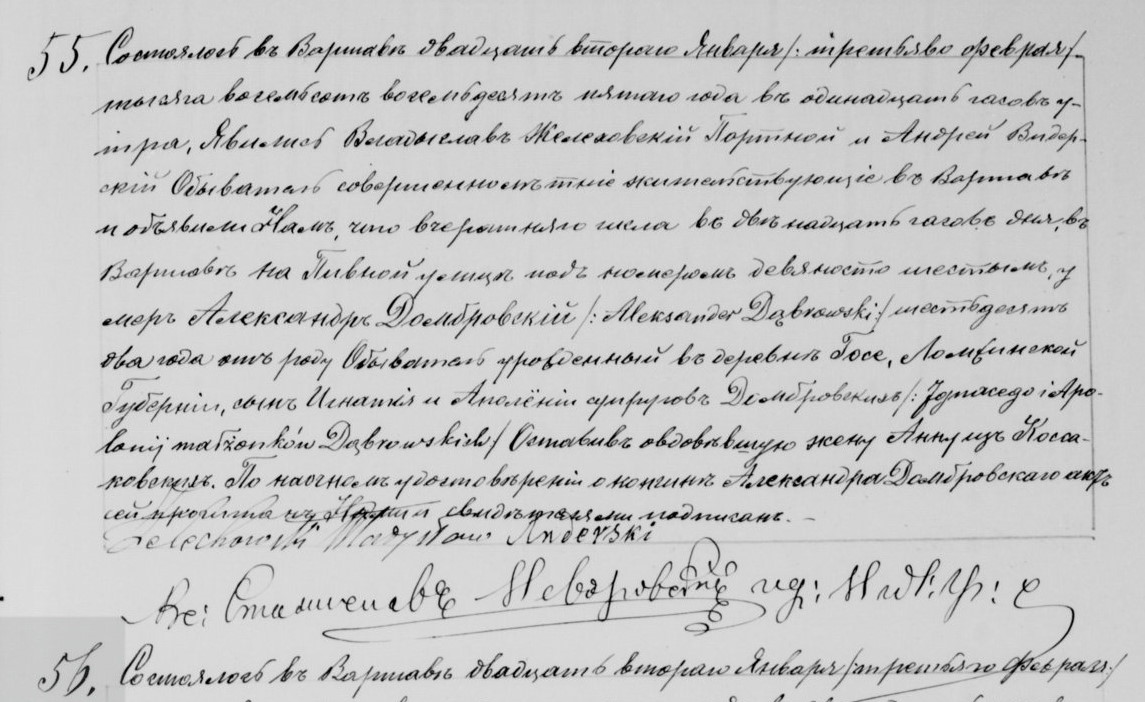 55. Состоялось въ Варшавѣ двадцать втораго Января /: третьяво февраля/
тысяча восемьсотъ восемьдесятъ пятаго года въ одинадцать часовъ у-
тра, Явились Владыславъ Желеховскій Портной и Андрей Видер-
скій Обыватель совершеннолѣтніе жительствующіе въ Варшавѣ
и объявили Намъ, что вчерашняго числа въ двѣнадцать часовъ дня, въ
Варшавѣ на Пивной улицѣ подъ номеромъ девяносто шестымъ, у
меръ Александръ Домбровскій /: Aleksander Dąbrowski :/ шестьдесятъ
два года отъ роду Обыватель урожденный въ деревнѣ Госе, Ломжинской
Губерніи, сынъ Игнатія и Аполёніи супруговъ Домбровскихъ /: Ignacego i Apo-
lonij małżonków Dąbrowskich :/ Оставивъ овдовѣвшую жену Анну изъ Косса-
ковскихъ. По наочномъ удостовѣреніи о кончинѣ Александра Домбровскаго актъ
сей свидѣтелями подписанъ. –
Żelechowski Władysław
Кс: Станиславъ
56. Состоялось въ Варшавѣ двадцать втораго Января /третьяго Февраля:/